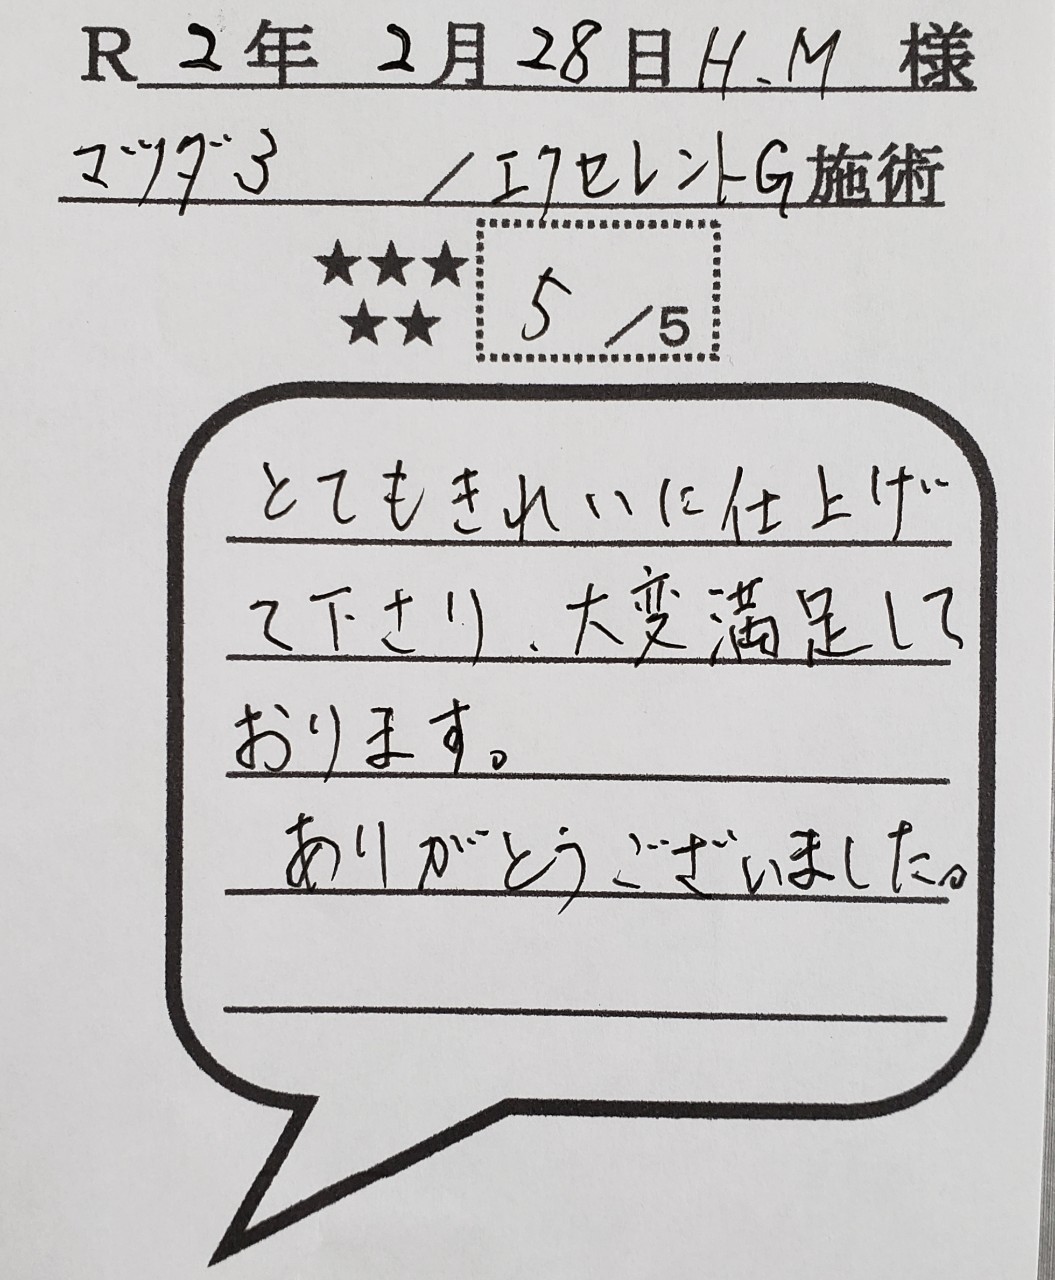 R 2年 2月 28日 H.M 様
マツダ3 /エクセレントG施術
★★★
★★
5 /5
とてもきれいに仕上げ
て下さり、大変満足して
おります。
ありがとうございました。